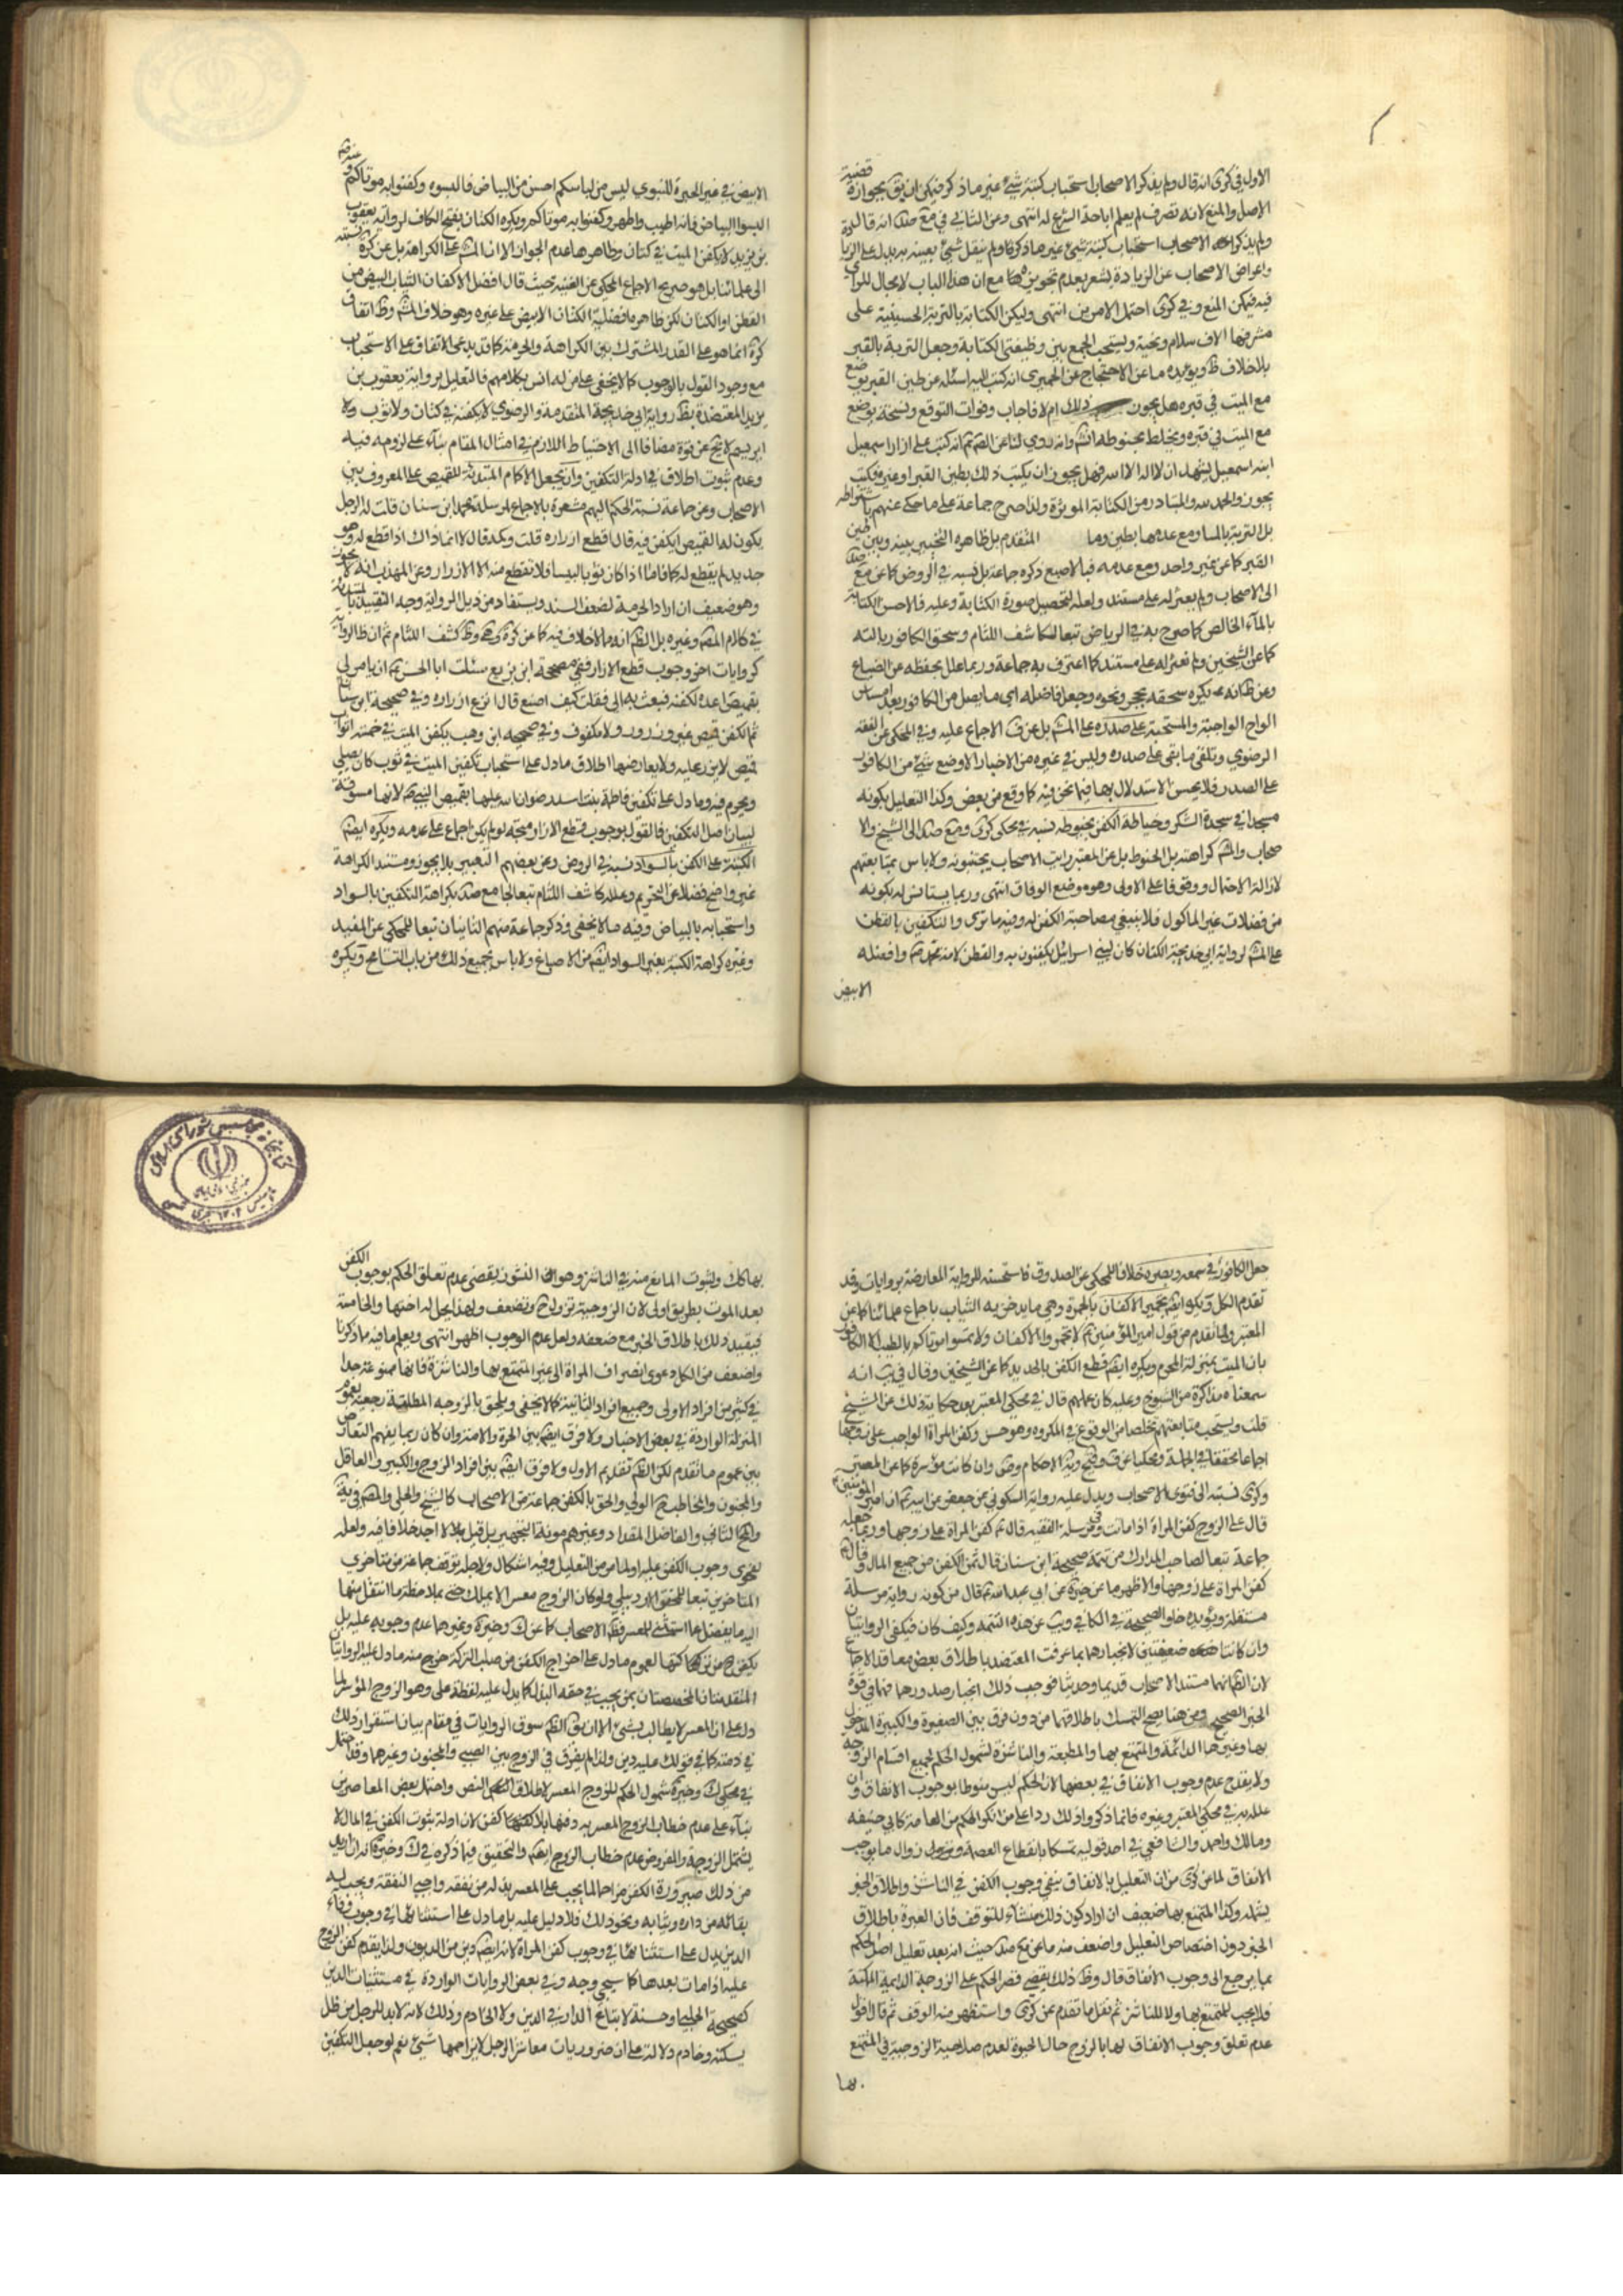 الاول في كرى انه قال ولم يذكر الاصحاب استحباب كتبة شيء غير ما ذكر فيمكن ان يق بجوازه قضية
الاصل والمنع لانه تصرف لم يعلم اباحة الشرع له انتهى وعن الثاني في مع صد انه قال
ولم يذكر الاصحاب استحباب كتبة شيء غير ما ذكر ولم ينقل شيء بعينه يدل على الزيا
واعراض الاصحاب عن الزيادة يشعر بعدم تجويزه مع ان هذا الباب لا مجال للراى
فيه فيمكن المنع وفي كرى احتمل الامرين انتهى وليكن الكتابة بالتربة الحسينية على
مشرفها الاف سلام وتحية ويستحب الجمع بين وظيفتي الكتابة وجعل التربة بالقبر
بلا خلاف ظ ويؤيده ما عن الاحتجاج عن الحميري انه كتب اليه اسئله عن طين القبر يوضع
مع الميت في قبره هل يجوز ذلك ام لا فاجاب وقرات التوقيع ونسخته يوضع
مع الميت في قبره ويخلط بحنوطه انش وانه روي لنا عن الصم انه كتب على ازار اسمعيل
ابنه اسمعيل يشهد ان لا اله الا الله فهل يجوز ان يكتب ذلك بطين القبر او غيره فكتب
يجوز والحمد لله والمتبادر من الكتابة المؤثرة ولذا صرح جماعة على ما حكي عنهم باشتراطه
بل التربة بالماء ومع عدمها بطين وما المتقدم بل ظاهره التخيير بينه وبين طين
القبر كما عن غير واحد ومع عدمه فبالاصبع ذكره جماعة بل نسبه في الروض كما عن مع صد
الى الاصحاب ولم يعثر له على مستند ولعله لتحصيل صورة الكتابة وعليه فالاحسن الكتابة
بالماء الخالص كما صرح به في الرياض تبعا لكاشف اللثام وسحق الكافور باليد
كما عن الشيخين ولم نعثر له على مستند كما اعترف به جماعة وربما علل بحفظه عن الضياع
وعن ظانه يكره سحقه بحجر ونحوه وجعل فاضله اي ما يفضل من الكافور بعد امساس
الواح الواجبة والمستحبة على صدره على المش بل عن ف الاجماع عليه وفي المحكي عن الفقه
الرضوي وتلقى ما بقي على صدره وليس في غيره من الاخبار الا وضع شيء من الكافور
على الصدر فلا يحسن الاستدلال بها فيما نحن فيه كما وقع من بعض وكذا التعليل بكونه
مسجدا في سجدة الشكر وخياطة الكفن بخيوطه نسبه في محكي كرى ومع صد الى الشيخ والا
صحاب والمش كراهة بل الخيوط بل عن المعتبر رايت الاصحاب يجتنبونه ولا باس بمتابعتهم
لازالة الاحتمال ووقوفا على الاولى وهو موضع الوفاق انتهى وربما يستانس له بكونه
من فضلات غير الماكول فلا ينبغي مصاحبة الكفن له وفيه ما ترى والتكفين بالقطن
على المش لرواية ابي خديجة الكتان كان لبني اسرائيل يكفنون به والقطن لامة محمد وافضله
الابيض
الابيض في غير الحبرة للنبوي ليس من لباسكم احسن من البياض فالبسوه وكفنوا به موتاكم
البسوا البياض فانه اطيب واطهر وكفنوا به موتاكم ويكره الكتان بفتح الكاف لرواية يعقوب
بن يزيد لا يكفن الميت في كتان وظاهرها عدم الجواز الا ان المش على الكراهة بل عن كرة نسبته
الى علمائنا بل هو صريح الاجماع المحكي عن الغنية حيث قال افضل الاكفان الثياب البيض من
القطن او الكتان لكن ظاهره افضلية الكتان الابيض على غيره وهو خلاف المش وظ اتفاق
كرة انما هو على القدر المشترك بين الكراهة والحرمة كما قد يدعى الاتفاق على الاستحباب
مع وجود القول بالوجوب كما لا يخفى على من له انس بكلامهم فالتعليل برواية يعقوب بن
يزيد المعتضدة بظ رواية ابي خديجة المتقدمة والرضوي لا يكفنه في كتان ولا ثوب
ابريسم لا يخ عن قوة مضافا الى الاحتياط اللازم في امثال المقام بناء على لزومه فيه
وعدم ثبوت اطلاق في ادلة التكفين وان يجعل الاكام المبتدئة للقميص على المعروف بين
الاصحاب وعن جماعة نسبة الحكم اليهم مشعرة بالاجماع لمرسلة محمد ابن سنان قلت له الرجل
يكون له القميص ايكفن فيه قال اقطع ازراره قلت وكمه قال لا انما ذاك اذا قطع له وهو
جديد لم يقطع له كما فاما اذا كان ثوبا لبيسا فلا تقطع منه الا الازرار وعن المهذب انه لا يجوز
وهو ضعيف ان اراد الحرمة لضعف السند ويستفاد من ذيل الرواية وجه التقييد بالمبتدئة
في كلام المصم وغيره بل الظم انه مما لا خلاف فيه كما عن كرة وظ كشف اللثام ثم ان ظ الرواية
كروايات اخر وجوب قطع الازرار ففي صحيحة ابن بزيع سئلت ابا الحسن ان يامر لي
بقميص اعده لكفني فبعث به الى فقلت كيف اصنع قال انزع ازراره وفي صحيحة ابن سنان
ثم الكفن قميص غير مزرور ولا مكفوف وفي صحيحة ابن وهب يكفن الميت في خمسة اثواب
قميص لا يزر عليه ولا يعارضها اطلاق ما دل على استحباب تكفين الميت في ثوب كان يصلي
ويحرم فيه وما دل على تكفين فاطمة بنت اسد رضوان الله عليها بقميص النبي لانها مسوقة
لبيان اصل التكفين فالقول بوجوب قطع الازرار متجه لو لم يكن اجماع على عدمه ويكره ايضم
الكتبة على الكفن بالسواد نسبه في الروض وعن بعضهم التعبير بلا يجوز ومستند الكراهة
غير واضح فضلا عن التحريم وعلله كاشف اللثام تبعا لجامع صد بكراهة التكفين بالسواد
واستحبابه بالبياض وفيه ما لا يخفى وذكر جماعة منهم الثانيان تبعا للمحكي عن المفيد
وغيره كراهة الكتبة بغير السواد ايضم من الاصباغ ولا باس بجميع ذلك من باب التسامح ويكره
جعل الكافور في سمعه وبصره خلافا للمحكي عن الصدوق فاستحسنه للرواية المعارضة بروايات وقد
تقدم الكل ويكره ايضم تجمير الاكفان بالجمرة وهي ما يدخن به الثياب باجماع علمائنا كما عن
المعتبر ولما تقدم من قول امير المؤمنين لا تجمروا الاكفان ولا تمسوا موتاكم بالطيب الا الكافور
بان الميت بمنزلة المحرم ويكره ايضم قطع الكفن بالحديد كما عن الشيخين وقال في يب انه
سمعناه مذاكرة من الشيوخ وعليه كان عملهم قال في محكي المعتبر بعد حكاية ذلك عن الشيخ
قلت ويستحب متابعتهم تخلصا من الوقوع في المكروه وهو حسن وكفن المراة الواجب على زوجها
اجماعا محققا في الجملة ومحكيا عن ف وقيح ونهاية الاحكام وضى وان كانت موسرة كما عن المعتبر
وكرى نسبته الى فتوى الاصحاب ويدل عليه رواية السكوني عن جعفر عن ابيه ان امير المؤمنين
قال على الزوج كفن المراة اذا ماتت وفي مرسلة الفقيه قال كفن المراة على زوجها وربما جعله
جماعة تبعا لصاحب المدارك من تتمة صحيحة ابن سنان قال ثمن الكفن من جميع المال وقال
كفن المراة على زوجها والاظهر ما عن خيرة عن ابي عبد الله قال من كونه رواية مرسلة
مستقلة ويؤيده خلو الصحيحة في الكافي ويب عن هذه التتمة وكيف كان فيكفي الروايتان
وان كانتا ضعيفتين لانجبارهما بما عرفت المعتضد باطلاق بعض معاقد الاجماع
لان الظم انهما مستند الاصحاب قديما وحديثا فوجب ذلك انجبار صدورهما فهما في قوة
الخبر الصحيح ومن هنا يصح التمسك باطلاقهما من دون فرق بين الصغيرة والكبيرة المدخول
بها وغيرها الدائمة والمتمتع بها والمطيعة والناشزة لشمول الحكم لجميع اقسام الزوجة
ولا يقدح عدم وجوب الانفاق في بعضها لان الحكم ليس منوطا بوجوب الانفاق وان
علله به في محكي المعتبر وغيره فانما ذكروا ذلك ردا على من انكر الحكم من العامة كابي حنيفه
ومالك واحمد والشافعي في احد قوليه تمسكا بانقطاع العصمة وزوال ما يوجب
الانفاق لما من كرى من ان التعليل بالانفاق ينفي وجوب الكفن في الناشز واطلاق الخبر
يشمله وكذا المتمتع بها ضعيف ان اراد كون ذلك منشاء للتوقف فان العبرة باطلاق
الخبر دون اختصاص التعليل واضعف منه ما عن مع صد حيث انه بعد تعليل اصل الحكم
بما يرجع الى وجوب الانفاق قال وظ ذلك يقضي قصر الحكم على الزوجة الدائمة الممكنة
فلا يجب للمتمتع بها ولا للناشز ثم نقل ما تقدم عن كرى واستظهر منه الوقف ثم قال اقول
عدم تعلق وجوب الانفاق لها بالزوج حال الحيوة لعدم صلاحية الزوجية في المتمتع
بها
بها كك ولثبوت المانع منه في الناشز وهو النشوز يقضى عدم تعلق الحكم بوجوب الكفن
بعد الموت بطريق اولى لان الزوجية تزول ح وتضعف ولهذا يحل له اختها والخامسة
فيقيد ذلك باطلاق الخبر مع ضعفه ولعل عدم الوجوب اظهر انتهى ويعلم ما فيه مما ذكرنا
واضعف من الكل دعوى انصراف المراة الى غير المتمتع بها والناشزة فانها ممنوعة جدا
في كثير من افراد الاولى وجميع افراد الثانية كما لا يخفى ويلحق بالزوجة المطلقة رجعية بعموم
المنزلة الواردة في بعض الاخبار ولا فرق ايضم بين الحرة والامة وان كان ربما يفهم التعارض
بين عموم ما تقدم لكن الظم تقديم الاول ولا فرق ايضم بين افراد الزوج والكبير والعاقل
والمجنون والمخاطب ح الولي والحق بالكفن جماعة من الاصحاب كالشيخ والحلي والمصم في ية
والمح الثاني والفاضل المقداد وغيرهم مونة التجهيز بل قيل بل لا اجد خلافا فيه ولعله
لفحوى وجوب الكفن عليه ولما مر من التعليل وفيه اشكال ولاجله توقف جماعة من متاخري
المتاخرين تبعا للمحقق الاردبيلي ولو كان الزوج معسرا لا يملك حتى بملاحظة ما انتقل منها
اليه ما يفضل عما استثني للمعسر فظ الاصحاب كما عن ك وخيرة وغيرهما عدم وجوبه عليه بل
يكفن ح من تركتها لعموم ما دل على اخراج الكفن من صلب التركة خرج منه ما دل عليه الروايتان
المتقدمتان المخصصتان بمن يجب في حقه البذل كما يدل عليه لفظة على وهو الزوج الموسر لما
دل على ان المعسر لا يطالب بشيء الا ان يق الظم سوق الروايات في مقام بيان استقرار ذلك
في ذمته كما في قولك عليه دين ولذا لم يفرق في الزوج بين الصبي والمجنون وغيرهما وقد احتمل
في محكي ك وخيرة شمول الحكم للزوج المعسر لاطلاق النص واحتمل بعض المعاصرين
بناء على عدم خطاب الزوج المعسر به دفنها بلا كفن لان ادلة ثبوت الكفن في المال لا
يشمل الزوجة والمفروض عدم خطاب الزوج ايضم والتحقيق فيما ذكره في ك وخيرة انه ان اريد
من ذلك صيرورة الكفن مزاحما لما يجب على المعسر بذله من نفقة واجبي النفقة ويجب له
بقائه من داره وثيابه ونحو ذلك فلا دليل عليه بل ما دل على استثنائها في وجوب وفاء
الدين يدل على استثنائها في وجوب كفن المراة لانه ايضم دين من الديون ولذا يقدم كفن الزوج
عليه اذا مات بعدها كما سيجي وجه وفي بعض الروايات الواردة في مستثنيات الدين
كصحيحة الحلبي او حسنة لا تباع الدار في الدين ولا الخادم وذلك لانه لا بد للرجل من ظل
يسكنه وخادم دلالة على ان ضروريات معاش الرجل لا يزاحمها شيء نعم لو جعل التكفين